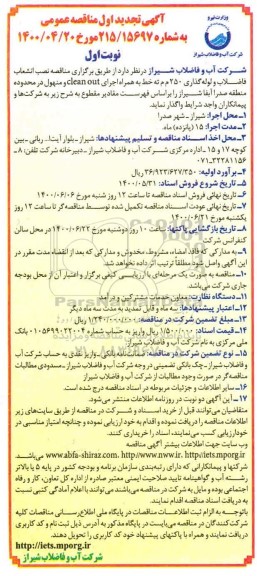 وزارت نیرو
شرکت آب و فاضلاب شیراز
آگهی تجدید اول مناقصه عمومی
به شماره ۲۱۵/۱۵۶۹۷ مورخ ۱۴۰۰/۰۴/۲۰
نوبت اول
شرکت آب و فاضلاب شیراز در نظر دارد از طریق برگزاری مناقصه نصب انشعاب
فاضلاب و لوله‌گذاری ۲۵۰ م.م ته خط به همراه اجرای clean out و منهول در محدوده
منطقه صدرا آبفا شیراز را براساس فهرست مقادیر مقطوع به شرح زیر به شرکت‌ها و
پیمانکاران واجد شرایط واگذار نماید.
۱-محل اجرا: شیراز - شهر صدرا
۲-مدت اجرا: ۱۵ (پانزده) ماه.
۳-محل اخذ اسناد مناقصه و تسلیم پیشنهادها: شیراز - بلوار آیت‌ا... ربانی - بین
کوچه ۱۷ و ۱۵ - اداره مرکزی شرکت آب و فاضلاب شیراز - دبیرخانه شرکت تلفن: ۸-
۰۷۱-۳۲۲۸۱۱۵۶
۴-برآورد اولیه: ۳۶/۹۲۳/۶۲۷/۳۵۰ ریال
۵-تاریخ شروع فروش اسناد: ۱۴۰۰/۰۵/۳۱
۶-تاریخ نهائی فروش اسناد مناقصه تا ساعت ۱۲ روز شنبه مورخ ۱۴۰۰/۰۶/۰۶
۷-تاریخ نهائی عودت اسناد مناقصه تکمیل شده توسط مناقصه‌گر تا ساعت ۱۲ روز
یکشنبه مورخ ۱۴۰۰/۰۶/۲۱
۸-تاریخ بازگشایی پاکتها: ساعت ۱۰ روز دوشنبه مورخ ۱۴۰۰/۰۶/۲۲ در محل سالن
کنفرانس شرکت
۹-به مدارکی که فاقد امضاء، مشروط، مخدوش و مدارکی که بعد از انقضاء مدت مقرر در
این آگهی واصل شود مطلقاً ترتیب اثر داده نخواهد شد.
۱۰-مناقصه به صورت یک مرحله‌ای با ارزیابی کیفی برگزار و اعتبار آن از محل بودجه
جاری شرکت می‌باشد.
۱۱-دستگاه نظارت: معاون خدمات مشترکین و درآمد
۱۲-اعتبار پیشنهادها: سه ماه و قابل تمدید به مدت سه ماه دیگر
۱۵-نوع تضمین شرکت در مناقصه: ضمانت نامه بانکی، واریز نقدی به حساب شرکت آب
و فاضلاب شیراز - چک بانکی تضمینی در وجه شرکت آب و فاضلاب شیراز - مسدودی مطالبات
مناقصه‌گر در صورت وجود مطالبات از شرکت آب و فاضلاب شیراز
۱۶-سایر اطلاعات و جزئیات مربوطه در اسناد مناقصه درج شده است.
۱۷-این آگهی دو نوبت در روزنامه اطلاعات منتشر می‌شود.
متقاضیان می‌توانند قبل از خرید اسناد و شرکت در مناقصه از طریق سایت‌های زیر
اطلاعات مناقصه را دریافت نموده و اقدام به خود ارزیابی نموده و چنانچه امتیاز مناسبی در
خودارزیابی کسب می‌نمایند، اسناد را خریداری کنند.
وب سایت جهت اطلاعات بیشتر آگهی مناقصه
www.abfa-shiraz.com، http://www.nww.ir، http://iets.mporg.ir می‌باشند.
شرکتها و پیمانکارانی که دارای رتبه‌بندی سازمان برنامه و بودجه کشور در پایه ۵ یا بالاتر
رشته آب و گواهینامه تایید صلاحیت ایمنی معتبر صادره از اداره کل تعاون، کار و رفاه
اجتماعی بوده و مایل به شرکت در مناقصه می‌باشند می‌توانند با اعلام آمادگی کتبی نسبت
به دریافت اسناد مناقصه اقدام نمایند.
باتوجه به الزام ثبت اطلاعات مناقصات در پایگاه ملی اطلاع‌رسانی مناقصات کلیه
شرکت‌کنندگان در مناقصه می‌بایست در پایگاه مذکور به آدرس ذیل ثبت نام و کد کاربری
دریافت نمایند و همراه با پاکتهای پیشنهاد خود کد کاربری را تحویل دهند.
http://iets.mporg.ir
شرکت آب و فاضلاب شیراز